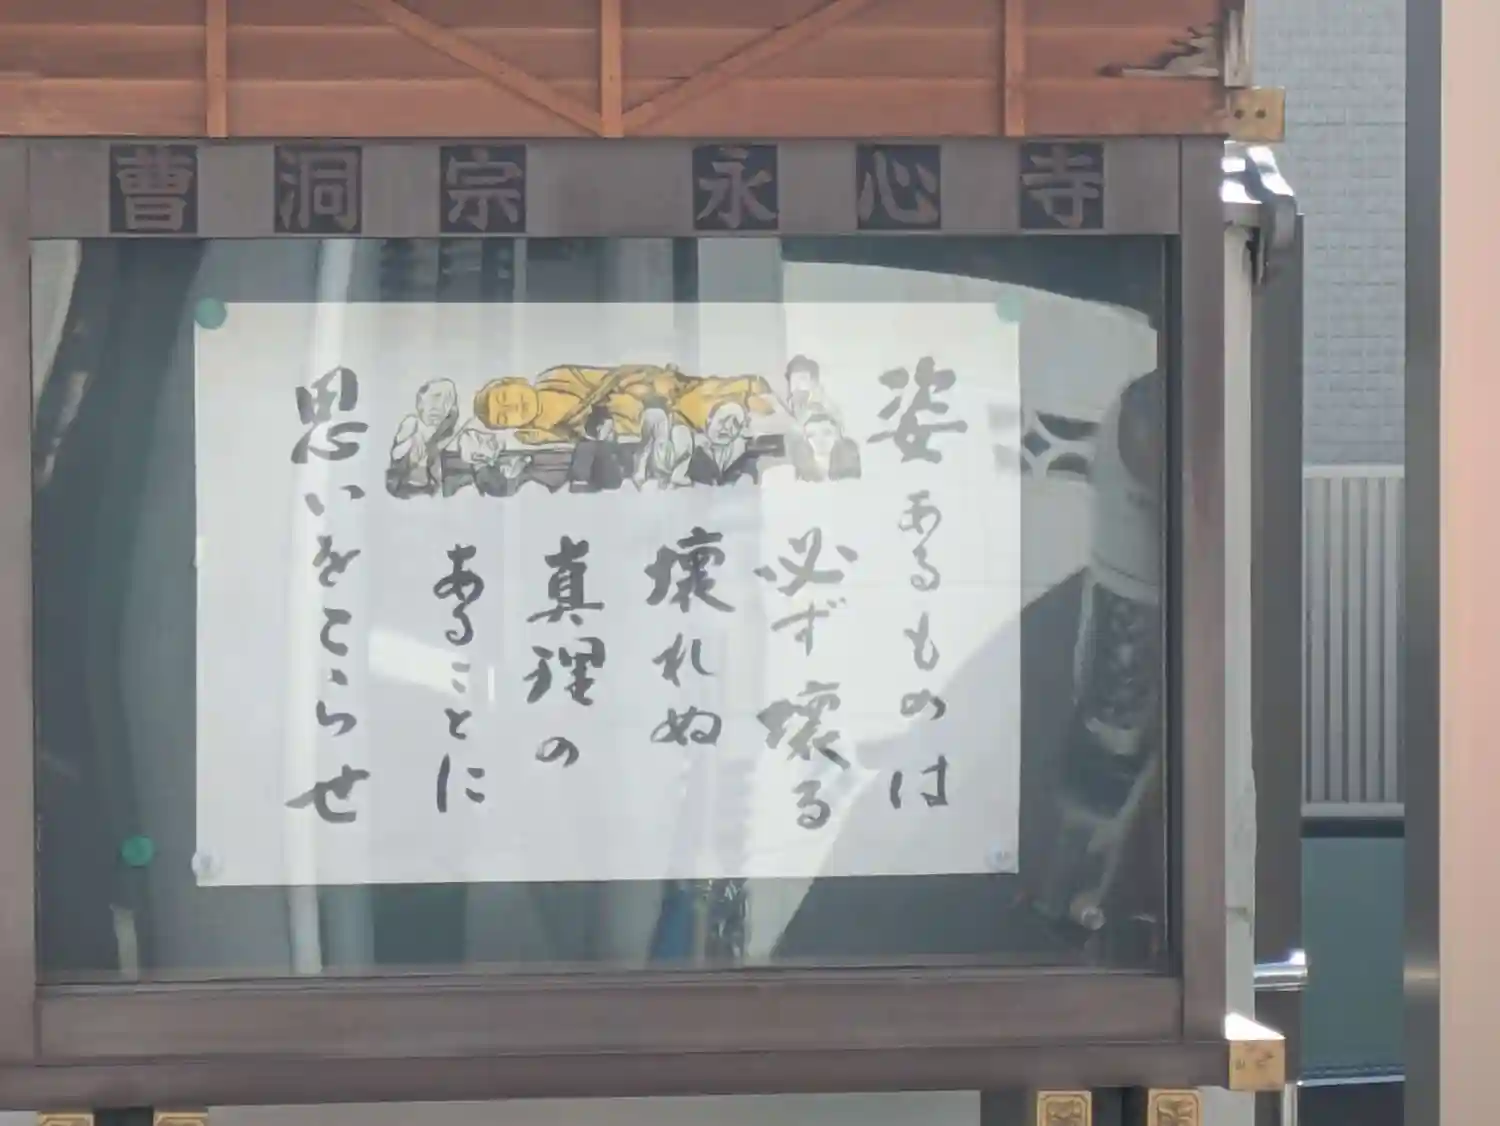 曹洞宗 永心寺
姿あるものは
必ず壊る
壊れぬ
真理の
あることに
思いをこらせ